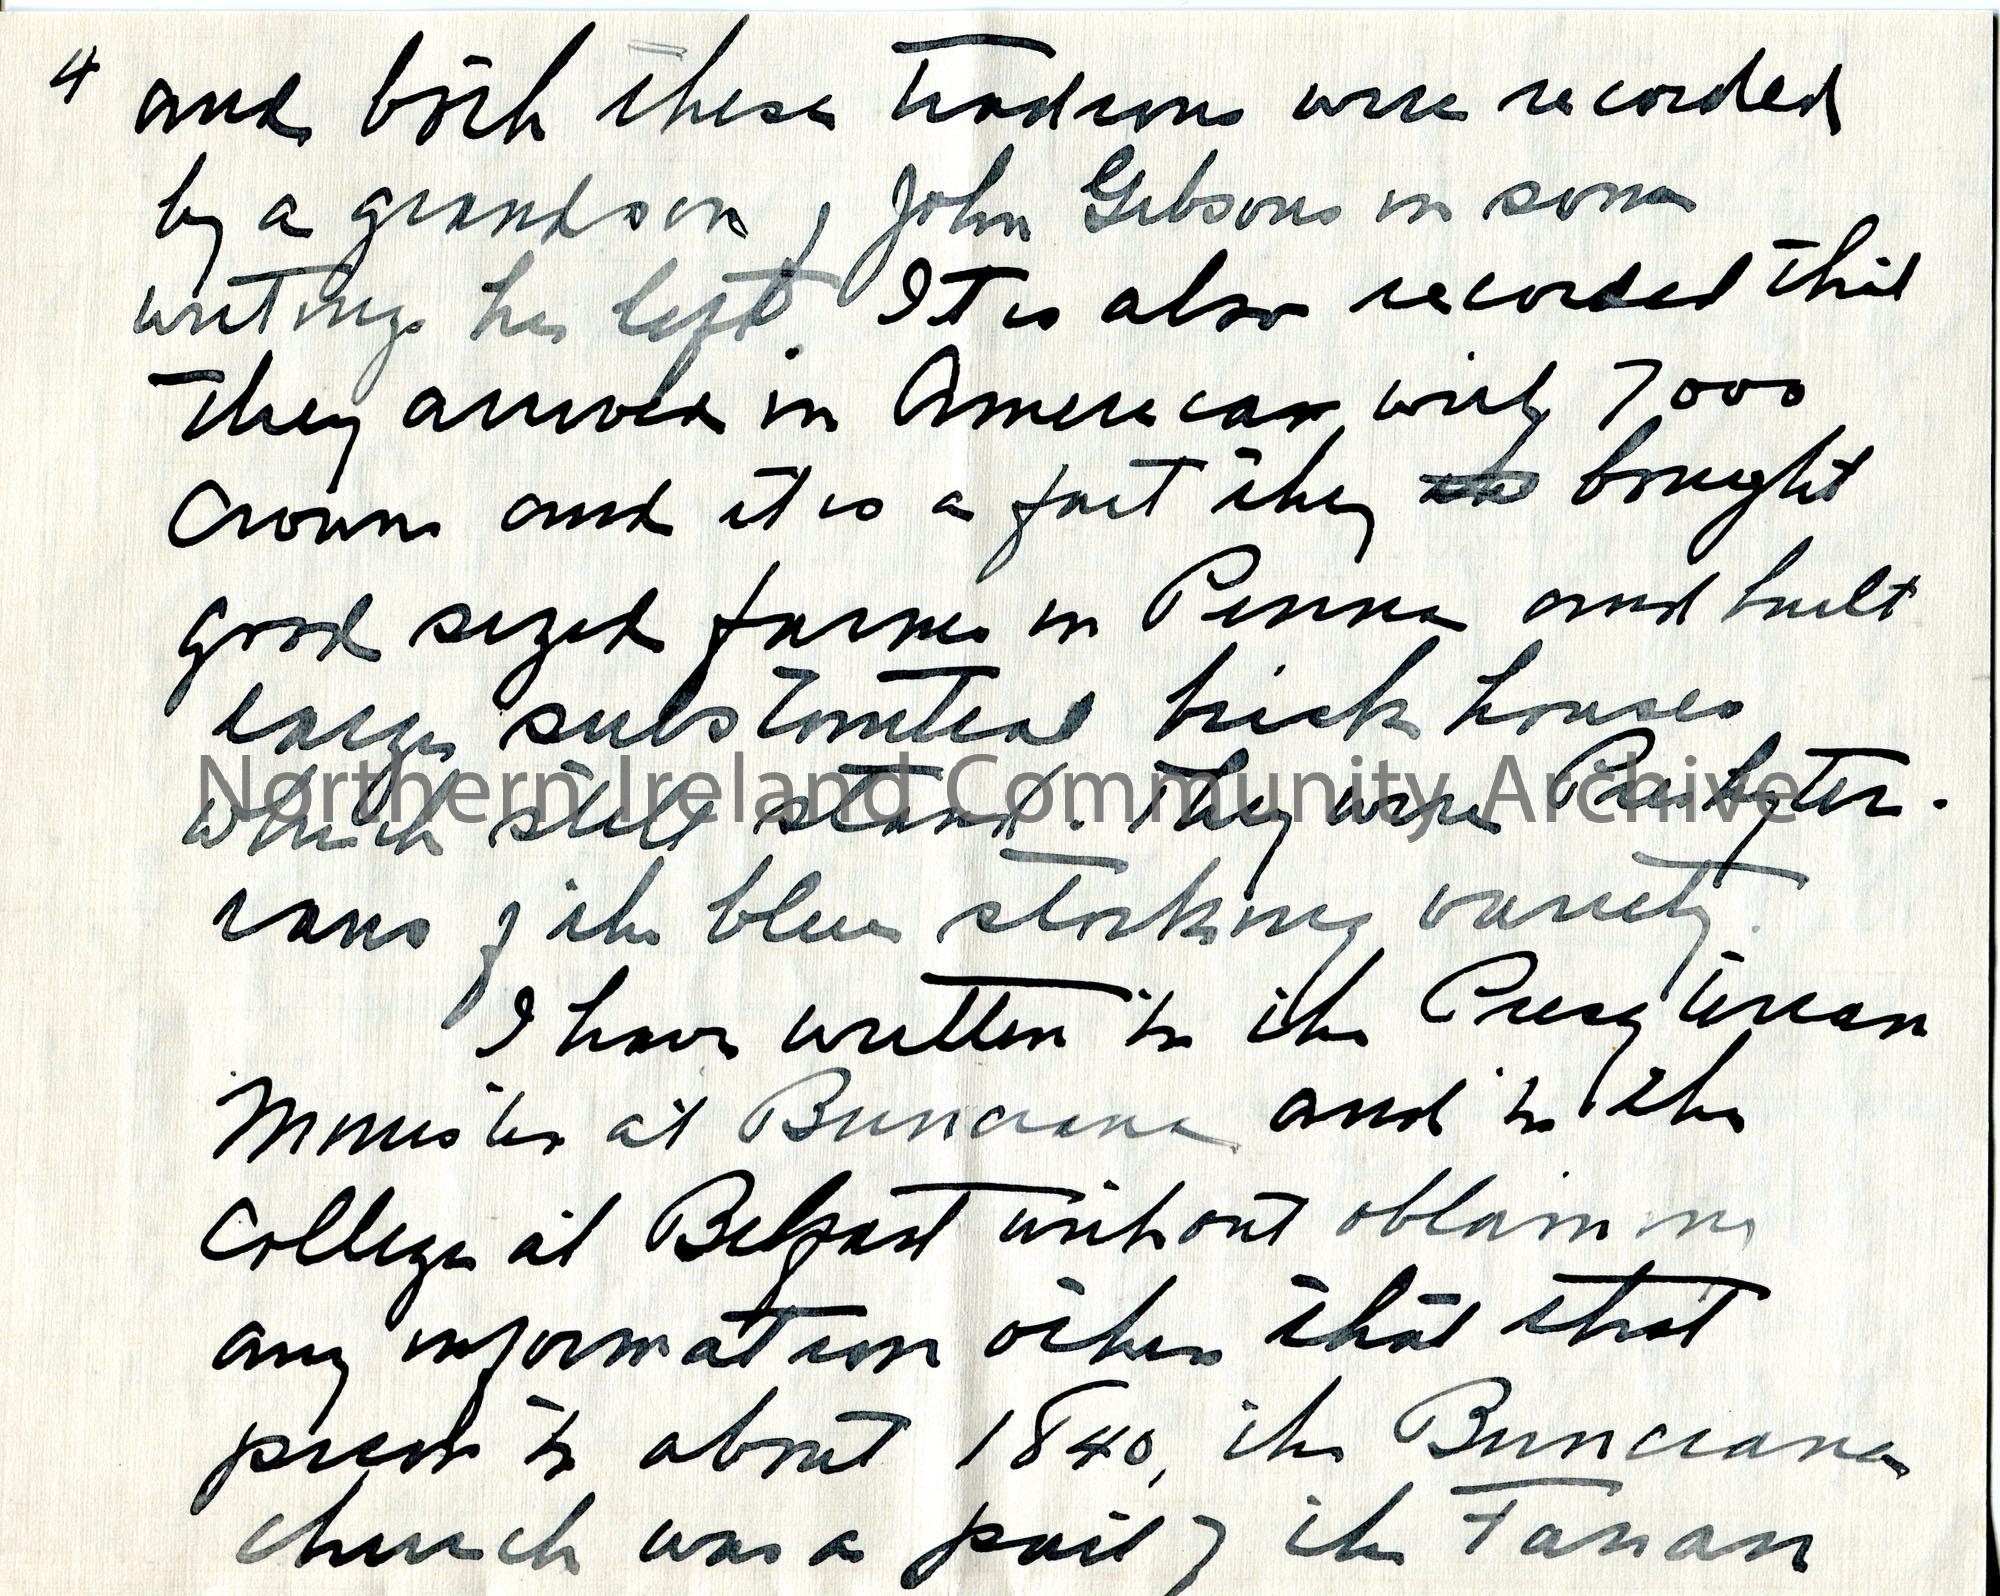 4 and both these tradions were recorded
by a grandson, John Gibsons in some
writings he left. It is also recorded that
they arrived in American with 7000
Crowns and it is a fact they bought
good sized farms in Penna and built
large substantial brick houses
Northern Ireland Community Archive
which still stand. They were Presbyter-
ians of the blue stocking variety.
I have written to the Presyterian
Minister at Buncrana and to the
College at Belfast without obtaining
any information other that that
prior to about 1840, the Buncrana
church was a part of the Fanan